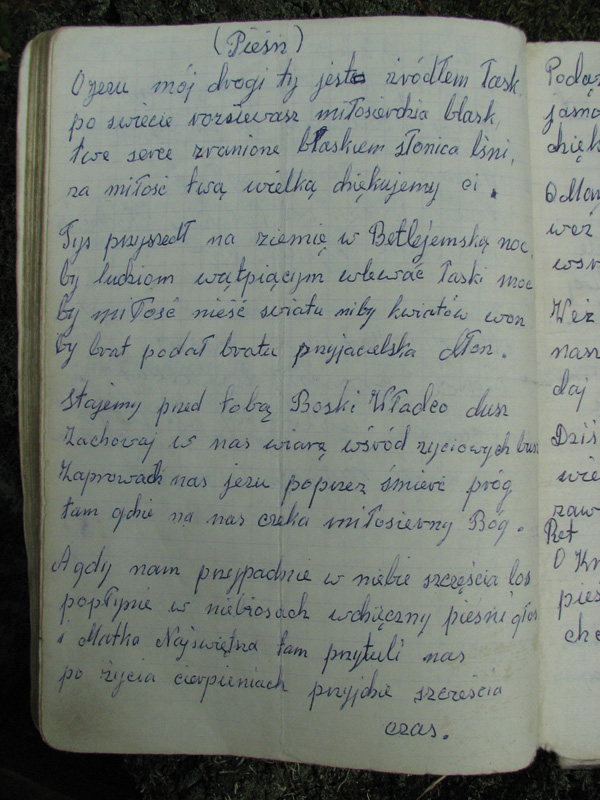 (Pieśń)
O jezu mój drogi ty jest źródłem łask
po swiecie rozsiewasz miłosierdzia blask,
twe serce zranione blaskiem słonica lśni,
za miłość twą wielką dziękujemy ci.
Tyś przyszedł na ziemię w Betlejemską noc
by ludziom wątpiącym wlewać łaski moc
by miłość nieść swiatu niby kwiatów won
by brat podał bratu przyjacielska dłon.
Stajemy przed tobą Boski Władco dusz
Zachowaj w nas wiarę wśród zyciowych burz
Zaprowadź nas jezu poprzez śmierć próg
tam gdzie na nas czeka miłosierny Bóg.
A gdy nam przypadnie w niebie szczęścia los
popłynie w niebiosach wdzięczny pieśni głos
i Matka Najświętsza tam przytuli nas
po życia cierpieniach przyjdzie szczescia
czas.
jasno
O Mary
weź
Weź
nasz
daj
Dziś
Ref
pieś